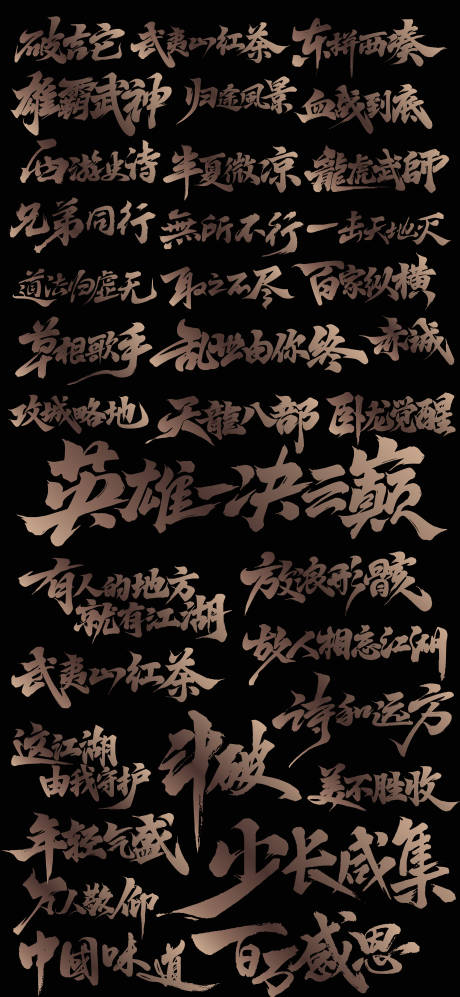 破言它 武夷山红茶 东拼西凑
雄霸武神 归途風景 血战到底
西游史诗 半夏微凉 龍虎武師
兄弟同行 無所不行 一击天地灭
道法归虚无 取之不尽 百家纵横
草根歌手 乱世由你终 赤城
攻城略地 天龍八部 卧龙觉醒
英雄一决云巅
有人的地方
就有江湖
放浪形骸
故人相忘江湖
武夷山红茶
诗和远方
这江湖
由我守护
斗破
美不胜收
年轻气盛
少长咸集
万人敬仰
中國味道
百万感恩